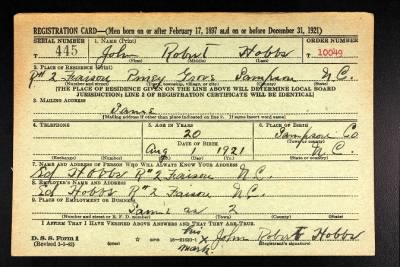 REGISTRATION CARD—(Men born on or after February 17, 1897 and on or before December 31, 1921)
SERIAL NUMBER 1. NAME (Print) ORDER NUMBER
445 John Robert Hobbs T 10049
(First) (Middle) (Last)
2. PLACE OF RESIDENCE (Print)
R#2 Faison Piney Grove Sampson N.C.
[THE PLACE OF RESIDENCE GIVEN ON THE LINE ABOVE WILL DETERMINE LOCAL BOARD
JURISDICTION; LINE 2 OF REGISTRATION CERTIFICATE WILL BE IDENTICAL]
3. MAILING ADDRESS
Same
[Mailing address if other than place indicated on line 2. If same insert word same]
4. TELEPHONE 5. AGE IN YEARS 6. PLACE OF BIRTH
20 Sampson Co.
DATE OF BIRTH (Town or county)
Aug 1 1921 N.C.
(Exchange) (Number) (Mo.) (Day) (Yr.) (State or country)
7. NAME AND ADDRESS OF PERSON WHO WILL ALWAYS KNOW YOUR ADDRESS
Ed Hobbs R#2 Faison N.C.
8. EMPLOYER'S NAME AND ADDRESS
Ed Hobbs R#2 Faison N.C.
9. PLACE OF EMPLOYMENT OR BUSINESS
Same as 2
(Number and street or R. F. D. number) (Town) (County) (State)
I AFFIRM THAT I HAVE VERIFIED ABOVE ANSWERS AND THAT THEY ARE TRUE.
D. S. S. Form 1 his
(Revised 1-5-42) (over) GPO X John Robert Hobbs
mark (Registrant's signature)